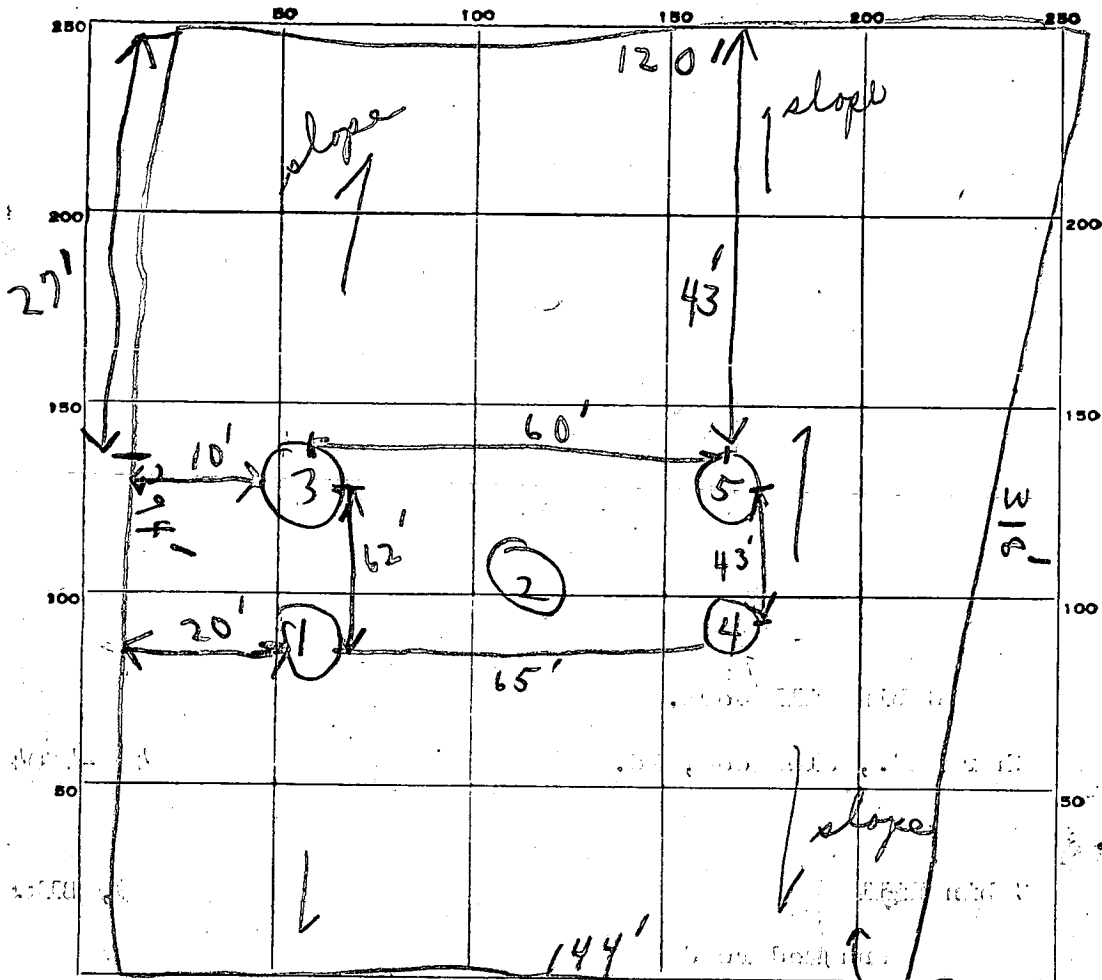 50 100 150 200 250
250
120'
slope
slope
200 200
27'
43'
150 150
60'
10'
3 5
62'
43'
2
100 100
20'
1 4
65'
50 50
slope
144'